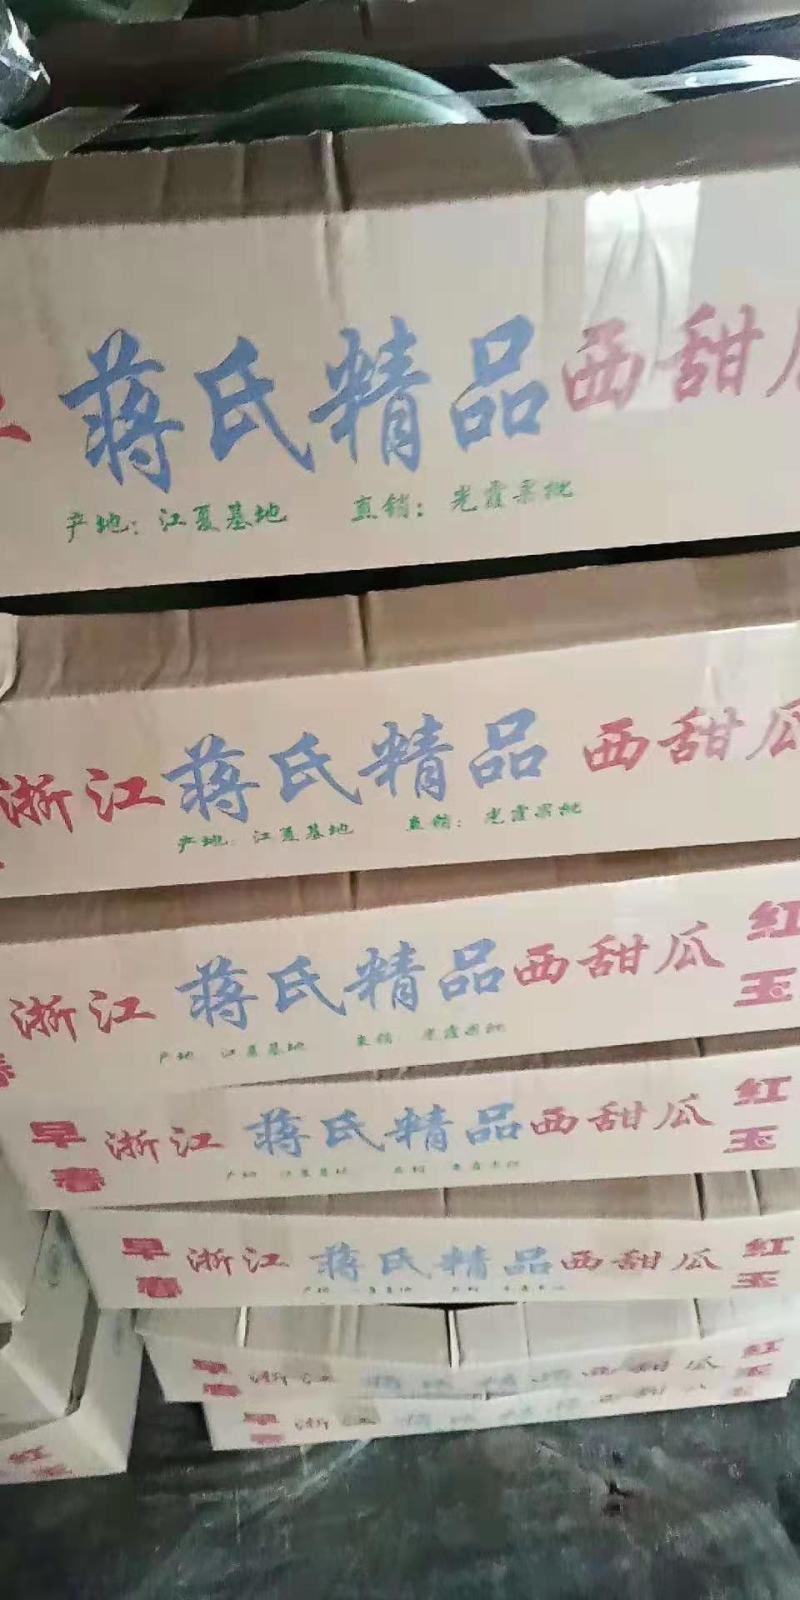 蒋氏精品西甜
产地：江夏基地 直销：光霞果批
浙江蒋氏精品 西甜瓜
产地：江夏基地 直销：光霞果批
浙江 蒋氏精品西甜瓜 红玉
产地：江夏基地 直销：光霞果批
早春 浙江 蒋氏精品西甜瓜 红玉
早春 浙江 蒋氏精品西甜瓜 红玉
早春 浙江 西甜瓜 红玉
早春 浙江
红玉